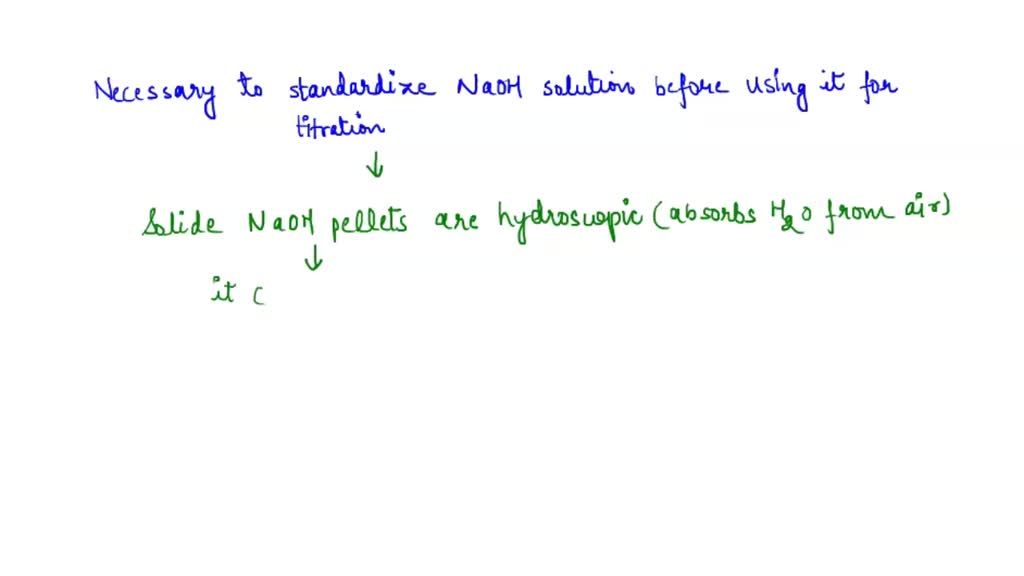 Necessary to standardize NaOH solution before using it for
titration
↓
Solide NaOH pellets are hydroscopic (absorbs H₂O from air)
↓
it c